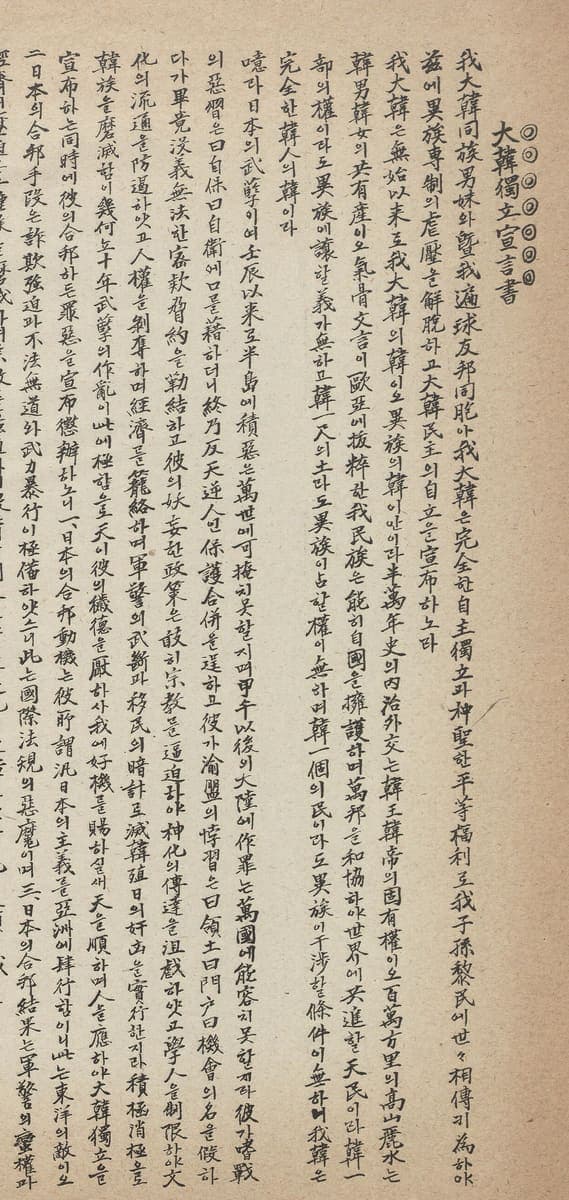 ◎◎◎◎◎◎◎
大韓獨立宣言書
我大韓同族男妹와 曁我遍球友邦同胞아 我大韓은 完全한 自主獨立과 神聖한 平等福利로 我子孫黎民에 世々相傳키 爲하야
玆에 異族專制의 虐壓을 解脫하고 大韓民主의 自立을 宣布하노라
我大韓은 無始以來로 我大韓의 韓이오 異族의 韓이 안이라 半萬年史의 內治外交는 韓王韓帝의 固有權이오 百萬方里의 高山麗水는
韓男韓女의 共有產이오 氣骨文言이 歐亞에 拔粹한 我民族은 能히 自國을 擁護하며 萬邦을 和協하야 世界에 共進할 天民이라 韓一
部의 權이라도 異族에 讓할 義가 無하고 韓一尺의 土라도 異族이 占할 權이 無하며 韓一個의 民이라도 異族이 干涉할 條件이 無하니 我韓은
完全한 韓人의 韓이라
噫라 日本의 武孼이여 壬辰以來로 半島에 積惡은 萬世에 可掩치 못할지며 甲午以後의 大陸에 作罪는 萬國에 能容치 못할지라 彼가 嗜戰
의 惡習은 曰自保曰自衛에 口를 藉하더니 終乃反天逆人인 保護合倂을 逞하고 彼가 渝盟의 悖習은 曰領土曰門戶曰機會의 名을 假하
다가 畢竟沒義無法한 密款脅約을 勒結하고 彼의 妖妄한 政策은 敢히 宗敎를 逼迫하야 神化의 傳達을 沮戲하얏고 學人을 制限하야 文
化의 流通을 防遏하얏고 人權을 剝奪하며 經濟를 籠絡하며 軍警의 武斷과 移民의 暗計로 滅韓殖日의 奸凶을 實行한지라 積極消極으로
韓族을 磨滅함이 幾何뇨 十年武孼의 作亂이 此에 極함으로 天이 彼의 穢德을 厭하사 我에 好機를 賜하실새 天을 順하며 人을 應하야 大韓獨立을
宣布하는 同時에 彼의 合邦하든 罪惡을 宣布懲辦하노니 一、日本의 合邦動機는 彼所謂汎日本의 主義를 亞洲에 肆行함이니 此는 東洋의 敵이오
二、日本의 合邦手段은 詐欺強迫과 不法無道와 武力暴行이 極備하얏스니 此는 國際法規의 惡魔이며 三、日本의 合邦結果는 軍警의 蠻權과